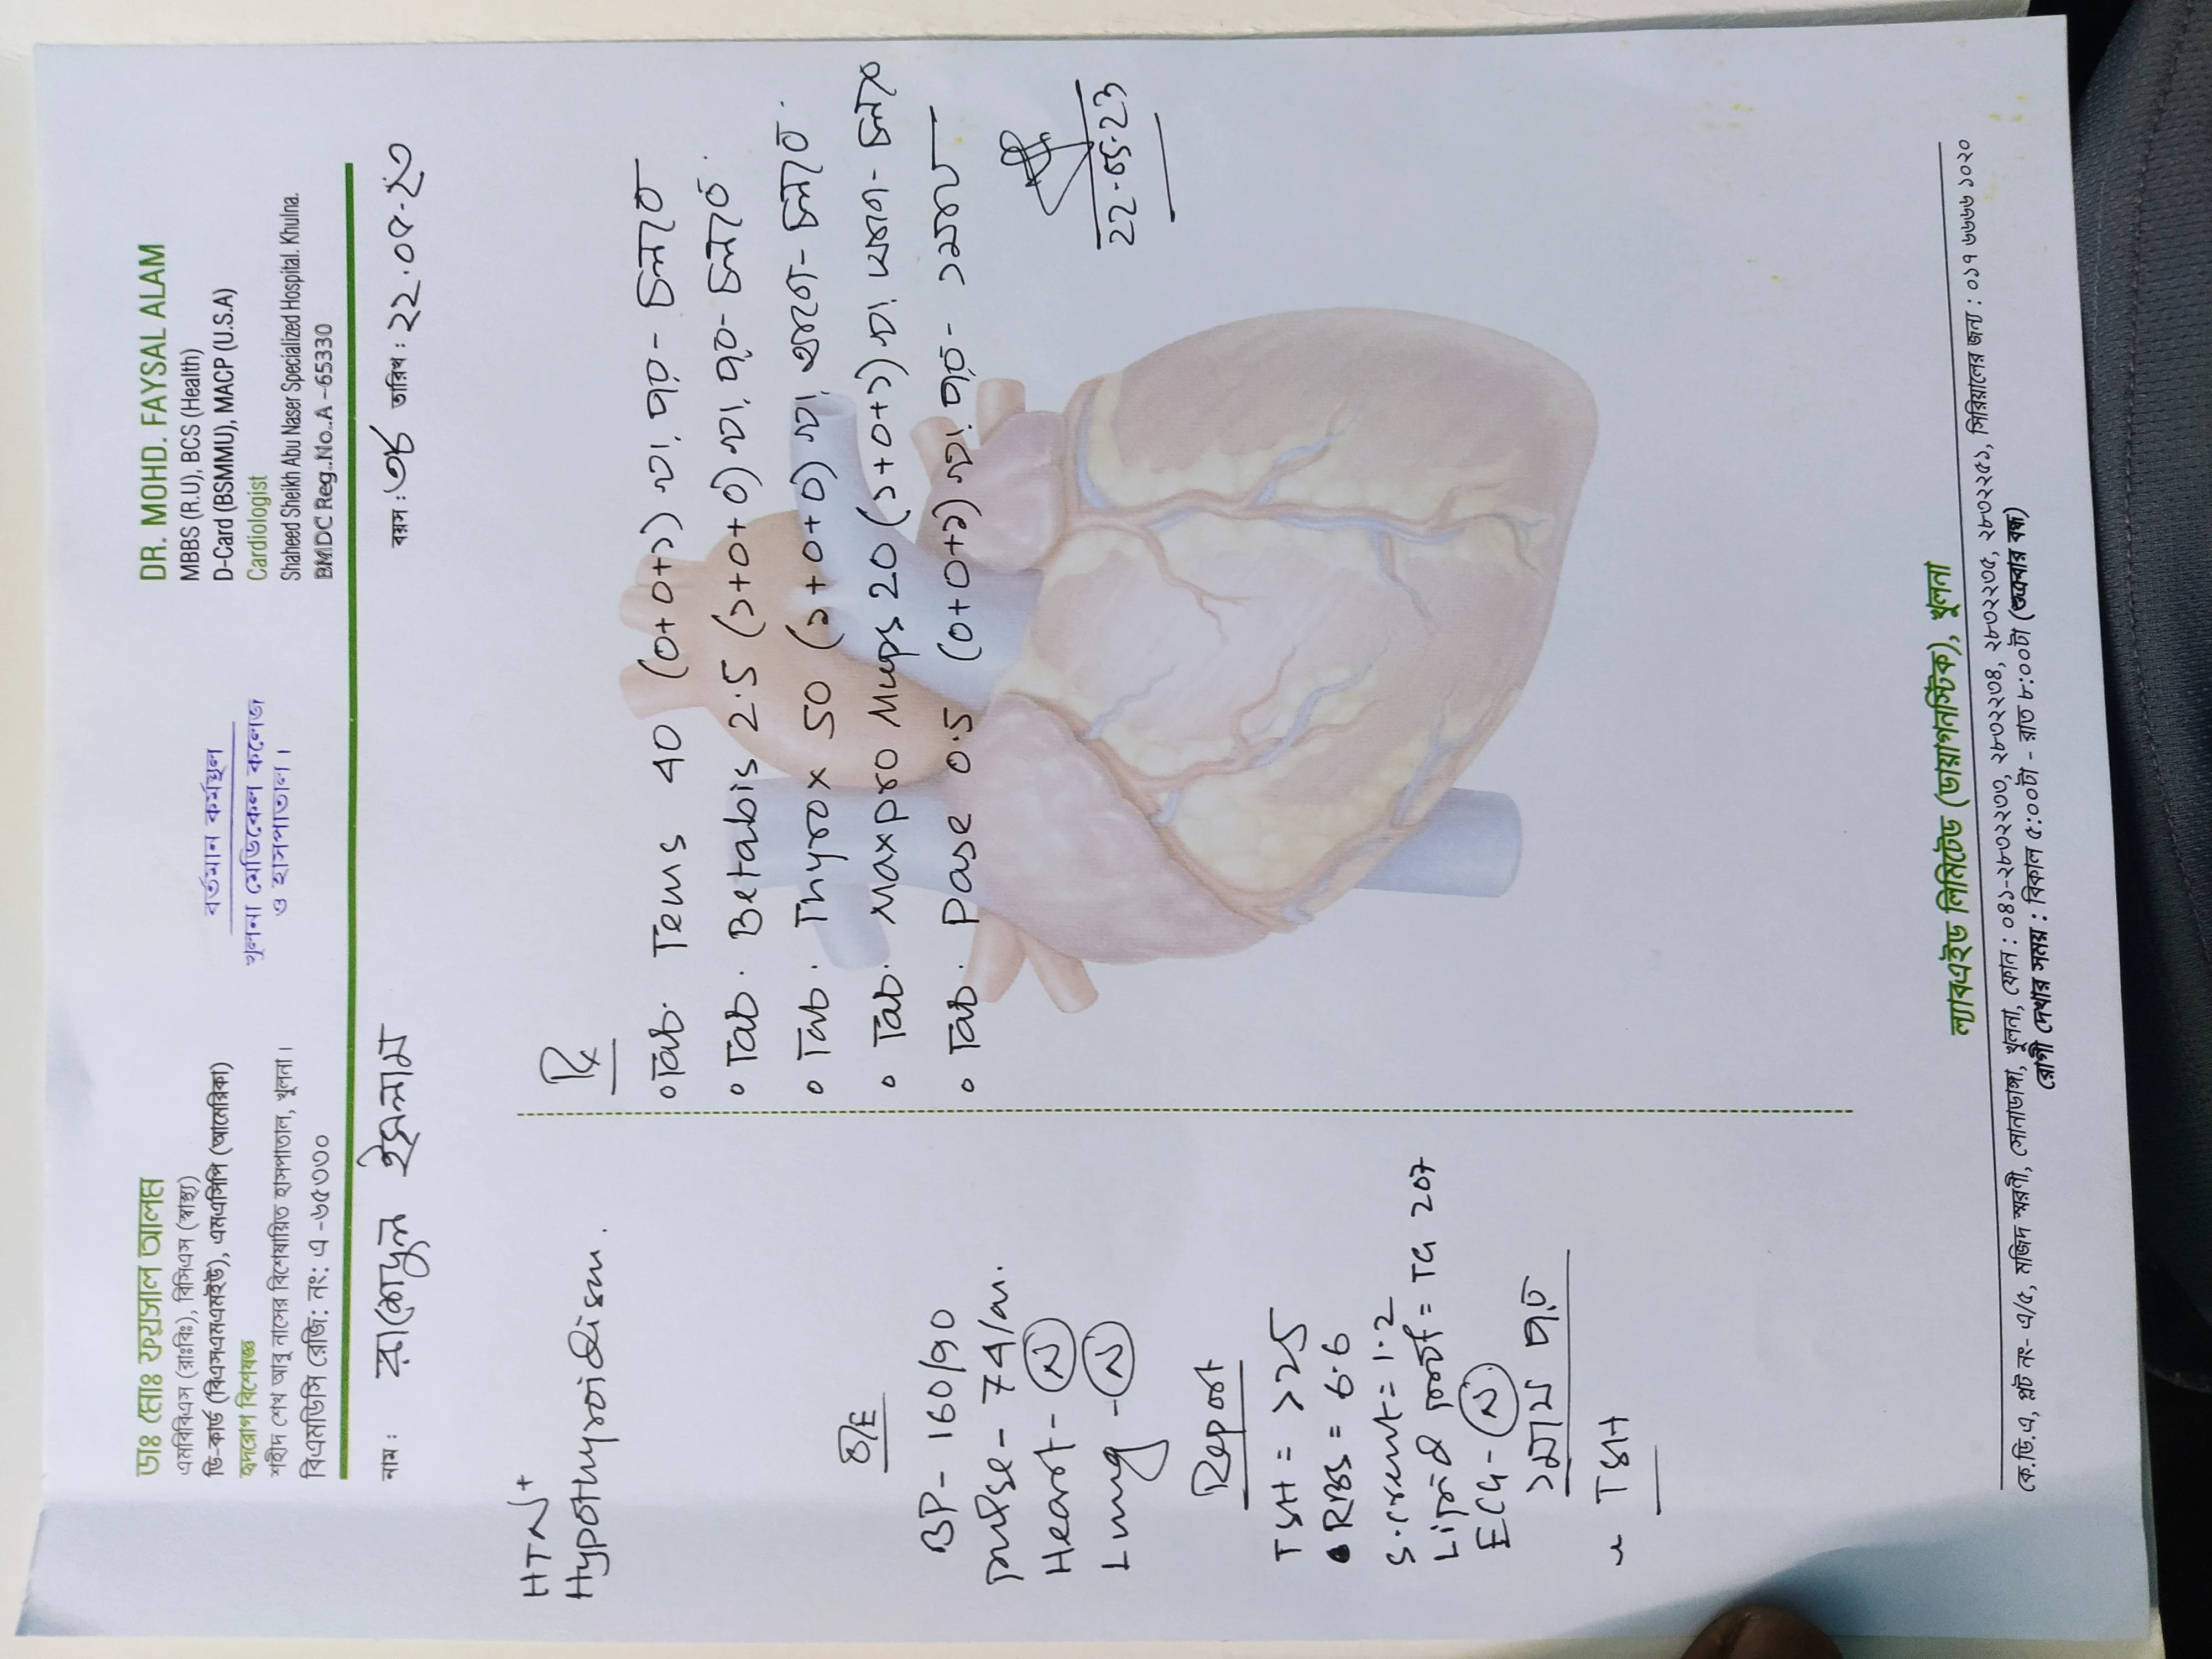 ডাঃ মোঃ ফয়সাল আলম
এমবিবিএস (রাঃবিঃ), বিসিএস (স্বাস্থ্য)
ডি-কার্ড (বিএসএমএমইউ), এমএসিপি (আমেরিকা)
হৃদরোগ বিশেষজ্ঞ
শহীদ শেখ আবু নাসের বিশেষায়িত হাসপাতাল, খুলনা।
বিএমডিসি রেজি: নং: এ -৬৫৩৩০
বর্তমান কর্মস্থল
খুলনা মেডিকেল কলেজ
ও হাসপাতাল।
DR. MOHD. FAYSAL ALAM
MBBS (R.U), BCS (Health)
D-Card (BSMMU), MACP (U.S.A)
Cardiologist
Shaheed Sheikh Abu Naser Specialized Hospital. Khulna.
BMDC Reg..No..A -65330
নাম: ইসলাম বয়স: তারিখ: ২২.০৫.২৩
HTN+
Hypothyroidism.
O/E
BP - 160/90
pulse - 74/m.
Heart - N
Lung - N
Report
TSH = >25
• RBS = 6.6
S. creat = 1.2
Lipid prof = TG 207
ECG - N
১মাস পর
TSH
Rx
০ Tab. Tems 40 (০+০+১)
০ Tab. Betabis 2.5 (১+০+০)
০ Tab. Thyrox 50 (১+০+০)
০ Tab. Maxpro Mups 20 (১+০+১)
০ Tab. Pase 0.5 (০+০+১) ১মাস
22.05.23
ল্যাবএইড লিমিটেড (ডায়াগনস্টিক), খুলনা
কে.ডি.এ, প্লট নং- এ/৫, মজিদ স্মরণী, সোনাডাঙ্গা, খুলনা, ফোন : ০৪১-২৮৩২২৩৩, ২৮৩২২৩৪, ২৮৩২২৩৫, ২৮৩২২৫১, সিরিয়ালের জন্য : ০১৭ ৬৬৬৬ ১০২০
রোগী দেখার সময় : বিকাল ৫:০০টা - রাত ৮:০০টা (শুক্রবার বন্ধ)